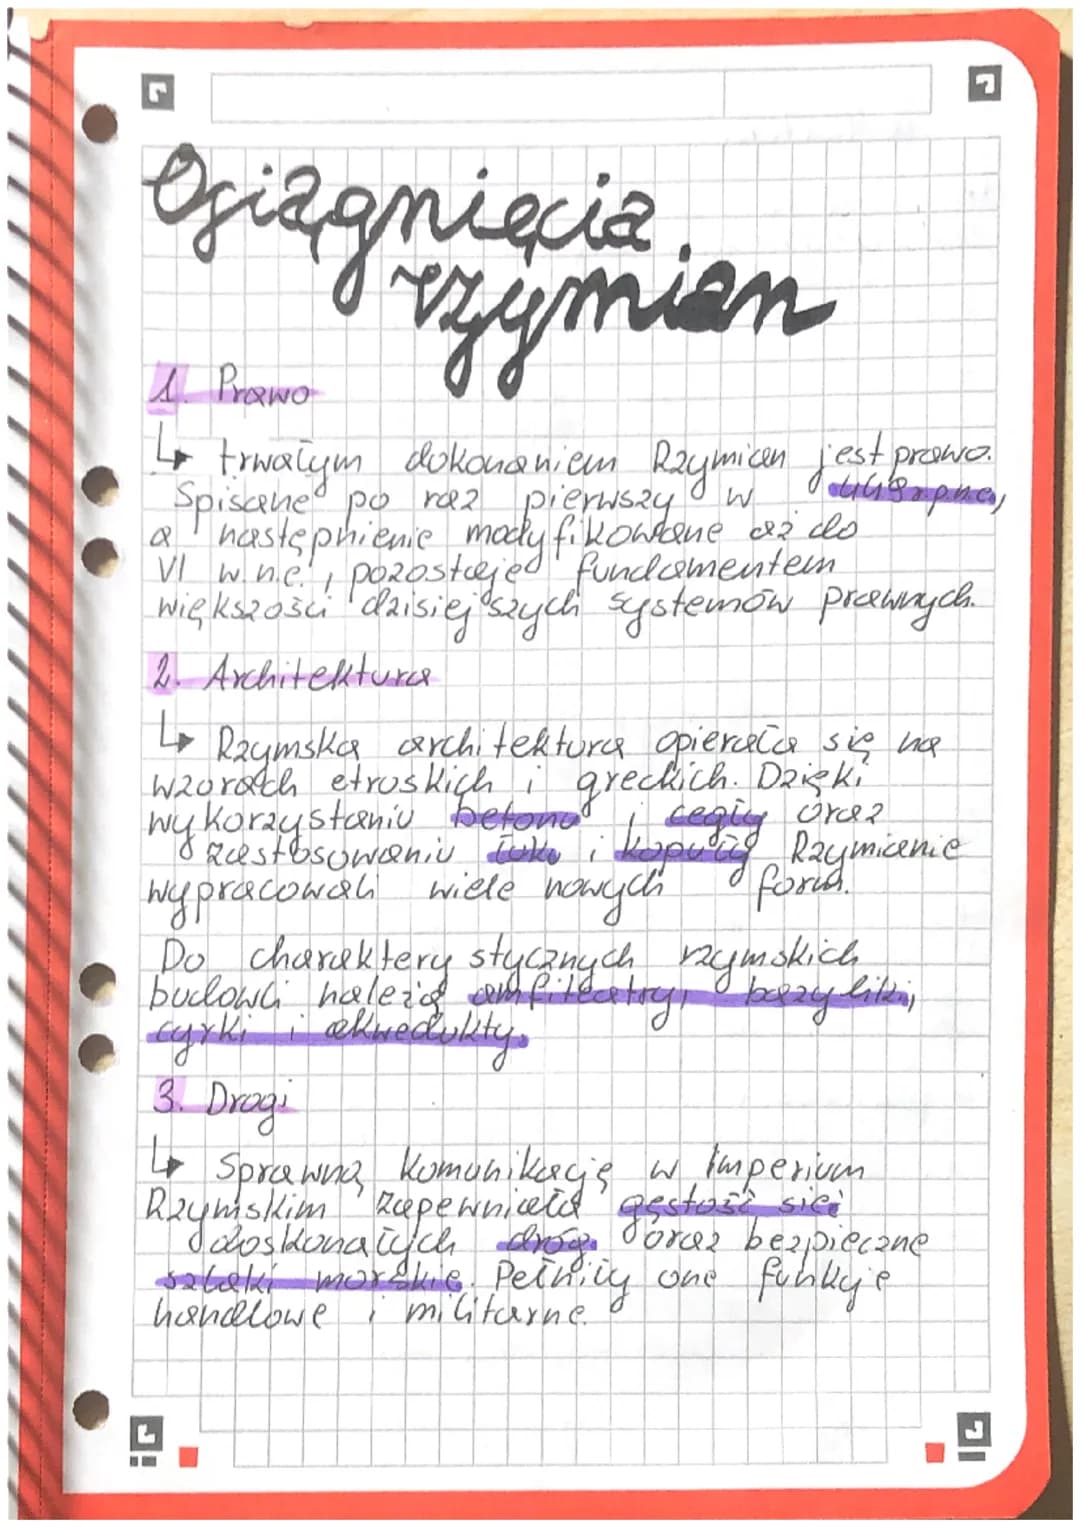 Osiągnięcia
rzymian
1. Prawo
↳ trwałym dokonaniem Rzymian jest prawo.
Spisane po raz pierwszy w 449 r.p.n.e,
a następnienie modyfikowane aż do
VI w.n.e., pozostaje fundamentem
większości dzisiejszych systemów prawnych.
2. Architektura
↳ Rzymska architektura opierała się na
wzorach etruskich i greckich. Dzięki
wykorzystaniu betonu i cegły oraz
zastosowaniu łuku i kopuły Rzymianie
wypracowali wiele nowych form.
Do charakterystycznych rzymskich
budowli należą amfiteatry, bazyliki,
cyrki i akwedukty.
3. Drogi
↳ Sprawną komunikację w Imperium
Rzymskim zapewniała gęstość sieci
doskonałych dróg oraz bezpieczne
szlaki morskie. Pełniły one funkcje
handlowe i militarne.